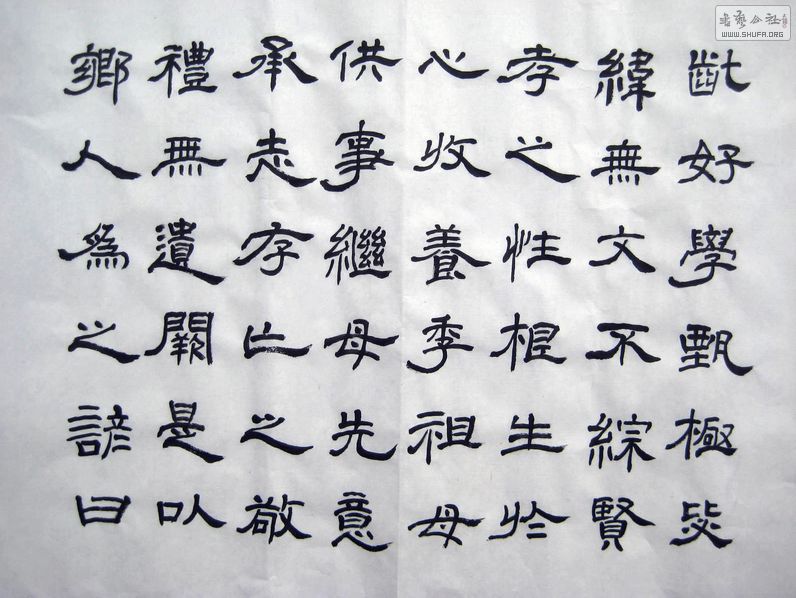 齔好學甄極毖
緯無文不綜賢
孝之性根生於
心收養季祖母
供事繼母先意
承志存亡之敬
禮無遺闕是以
鄉人為之諺曰
WWW.SHUFA.ORG